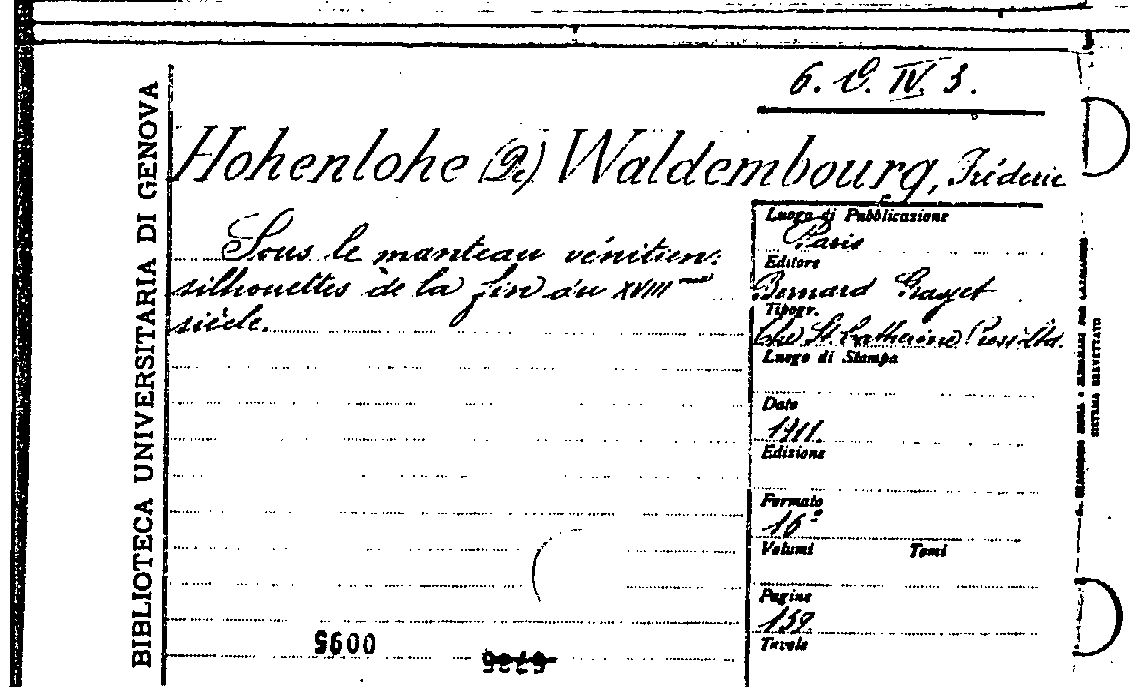 6. D. IV. 3.
BIBLIOTECA UNIVERSITARIA DI GENOVA
Hohenlohe (De) Waldembourg, Fréderic
Sous le manteau vénitien:
silhouettes de la fin du XVIII me
siècle.
Luogo di Pubblicazione
Paris
Editore
Bernard Grasset
Tipogr.
The St. Catherine Press Ltd.
Luogo di Stampa
Data
1911.
Edizione
Formato
16º
Volumi Tomi
Pagine
159.
Tavole
SISTEMA BREVETTATO